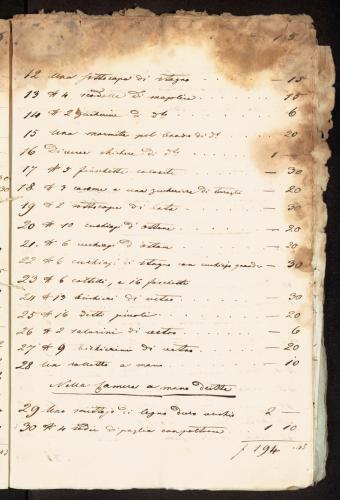 12 Una sottocopa di stagno — 15
13 N° 4 scodelle di majolica — 15
14 N° 2 zucheriere d° — 6
15 Una marmitta pel brodo di d° — 20
16 Diverse chichere di d° 1 —
17 N° 3 — 30
18 N° 3 e una zucheriera di — 20
19 N° 2 sottocope di lata — 30
20 N° 10 cuchiaj di ottone — 20
21 N° 6 cuchiaj d'ottone — 20
22 N° 6 cuchiaj di stagno con cuchiajo grande — 30
23 N° 6 coltelli, e 16 forchetti
24 N° 13 bichieri di vetro — 30
25 N° 16 detti picoli — 20
26 N° 2 salarini di vetro — 6
27 N° 9 bichierini di vetro — 20
28 Un a mano — 10
Nella Camera a mano dritta
29 Uno di legno duro vechio 2 —
30 N° 4 sedie di paglia con poltrona 1 10
f 194